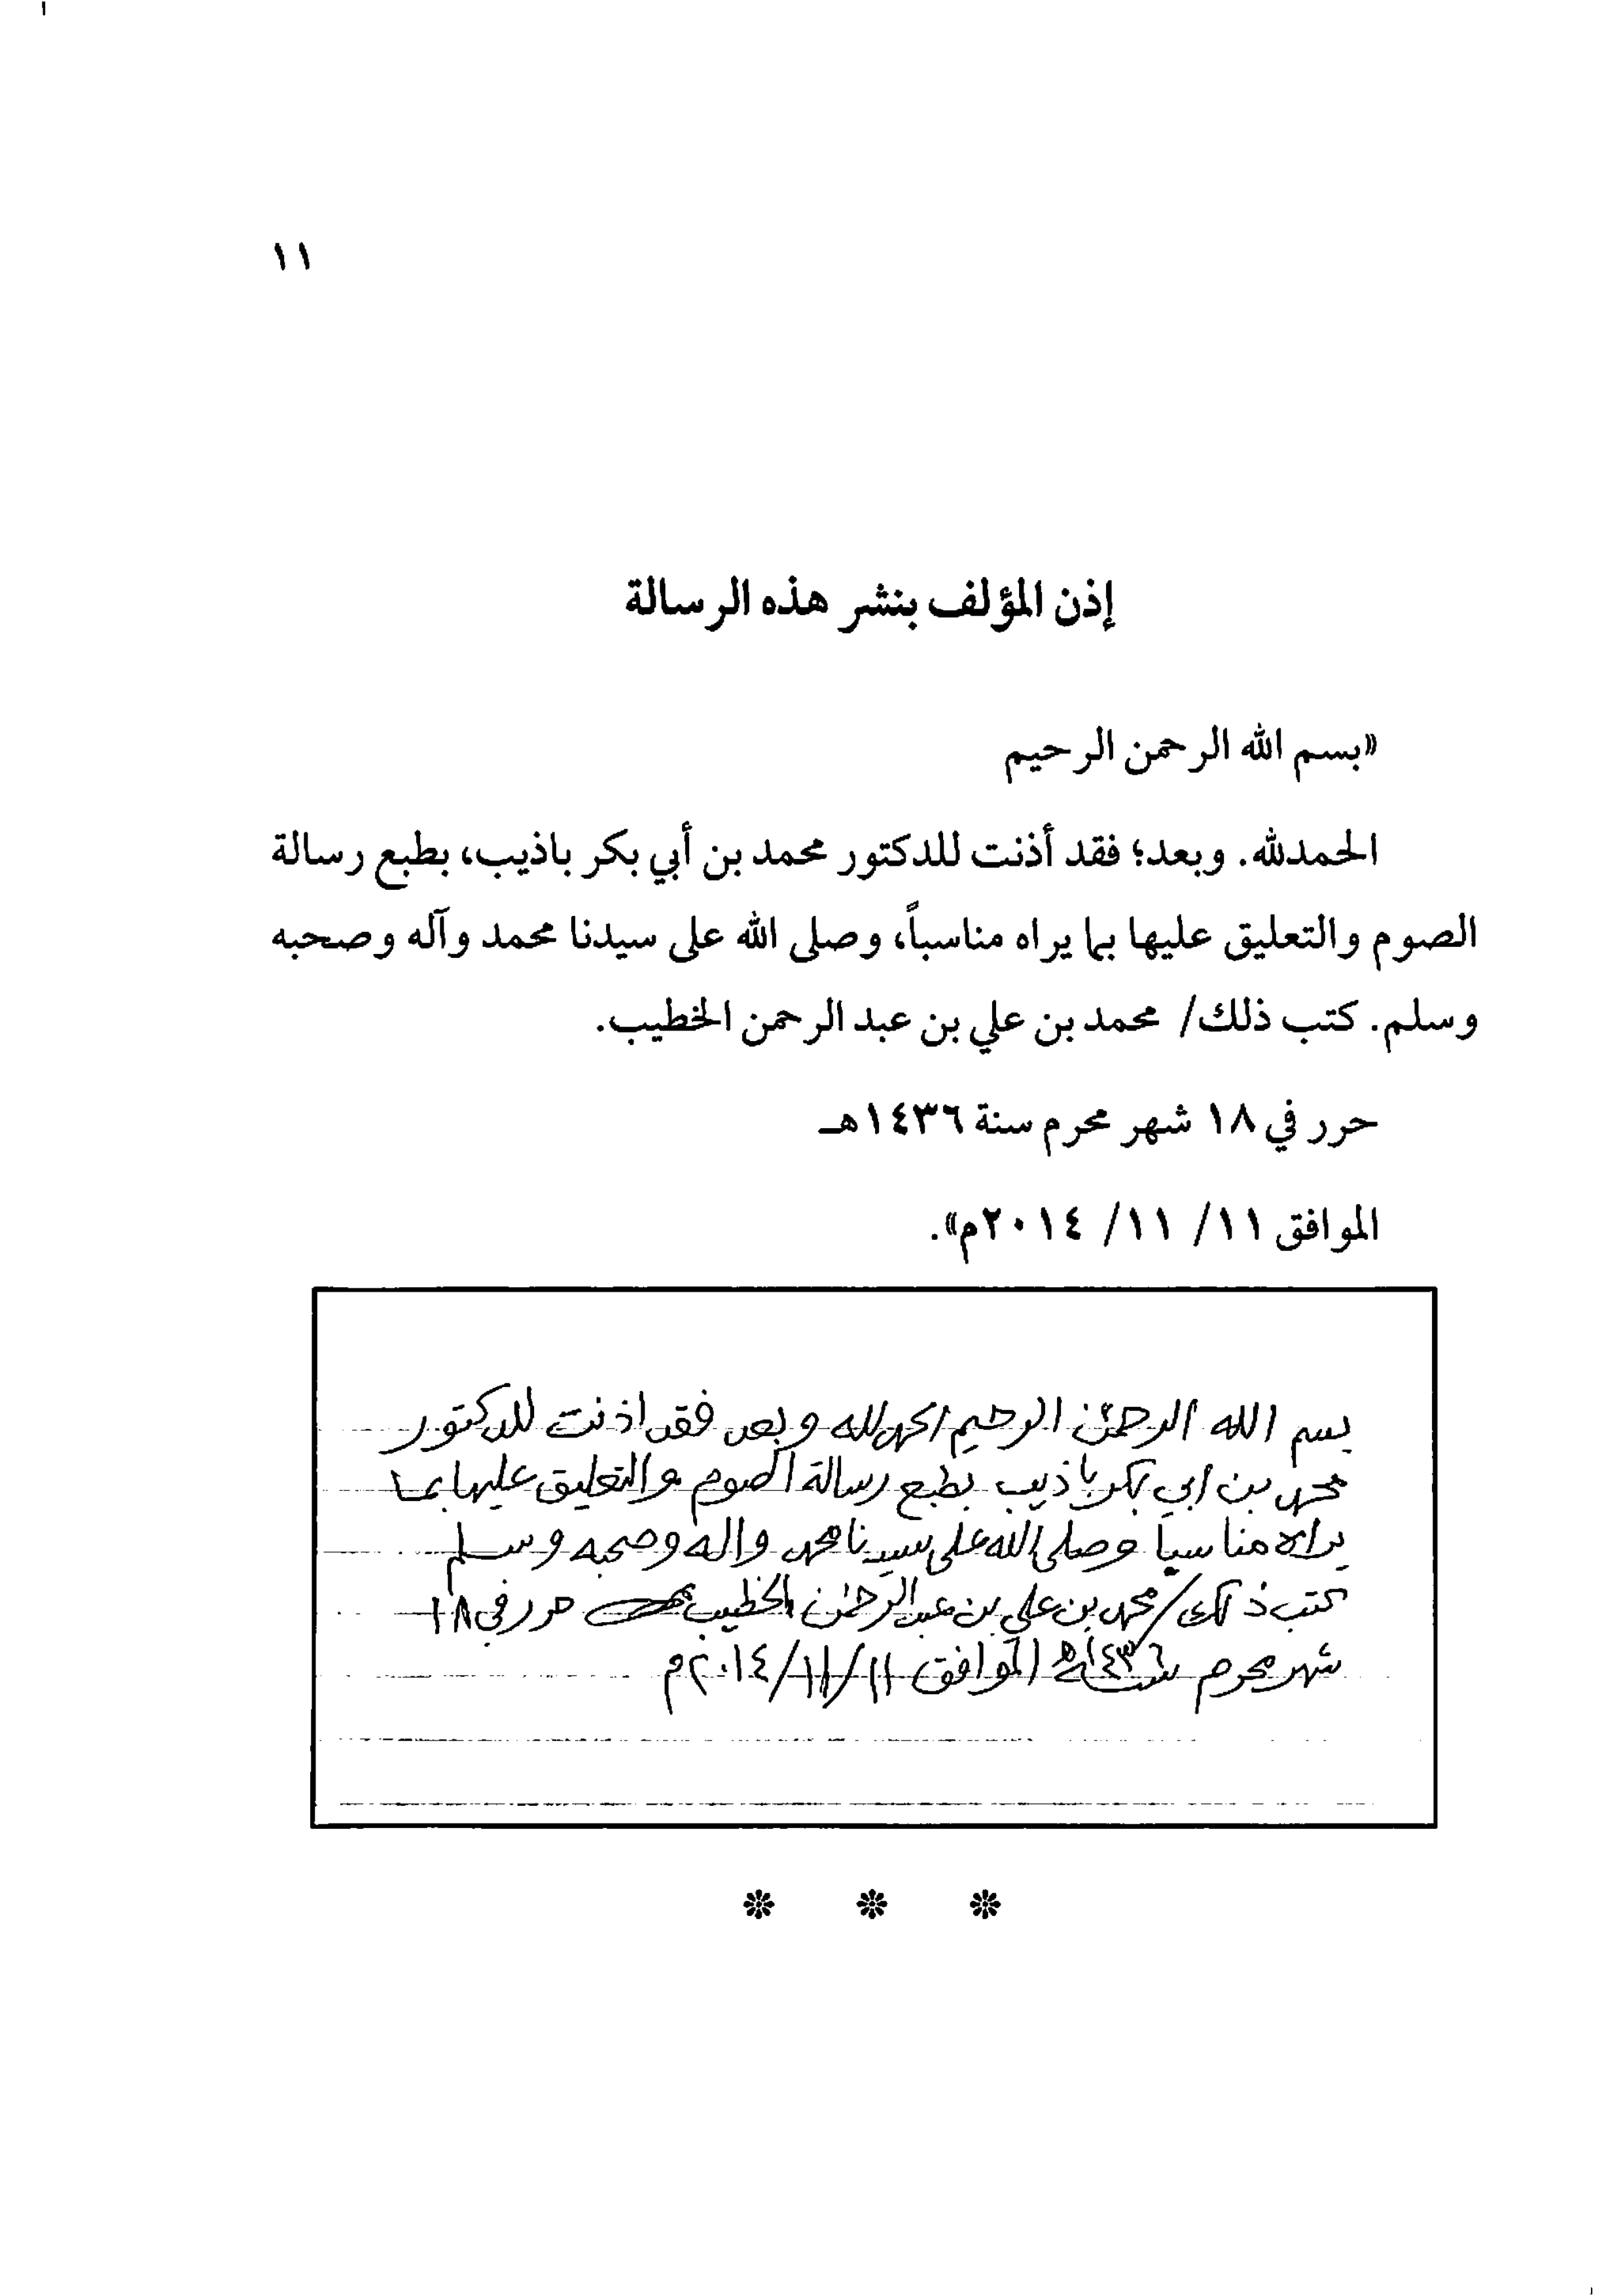 ١١
إذن المؤلف بنشر هذه الرسالة
«بسم الله الرحمن الرحيم
الحمدلله. وبعد؛ فقد أذنت للدكتور محمد بن أبي بكر باذيب، بطبع رسالة
الصوم والتعليق عليها بما يراه مناسباً، وصلى الله على سيدنا محمد وآله وصحبه
وسلم. كتب ذلك/ محمد بن علي بن عبد الرحمن الخطيب.
حرر في ١٨ شهر محرم سنة ١٤٣٦هـ
الموافق ١١/ ١١/ ٢٠١٤م».
بسم الله الرحمن الرحيم الحمدلله وبعد فقد اذنت للدكتور
محمد بن ابي بكر باذيب بطبع رسالة الصوم والتعليق عليها بما
يراه مناسباً وصلى الله على سيدنا محمد واله وصحبه وسلم
كتب ذلك/ محمد بن علي بن عبد الرحمن الخطيب حرر في ١٨
شهر محرم سنة ١٤٣٦ه الموافق ١١/١١/٢٠١٤م